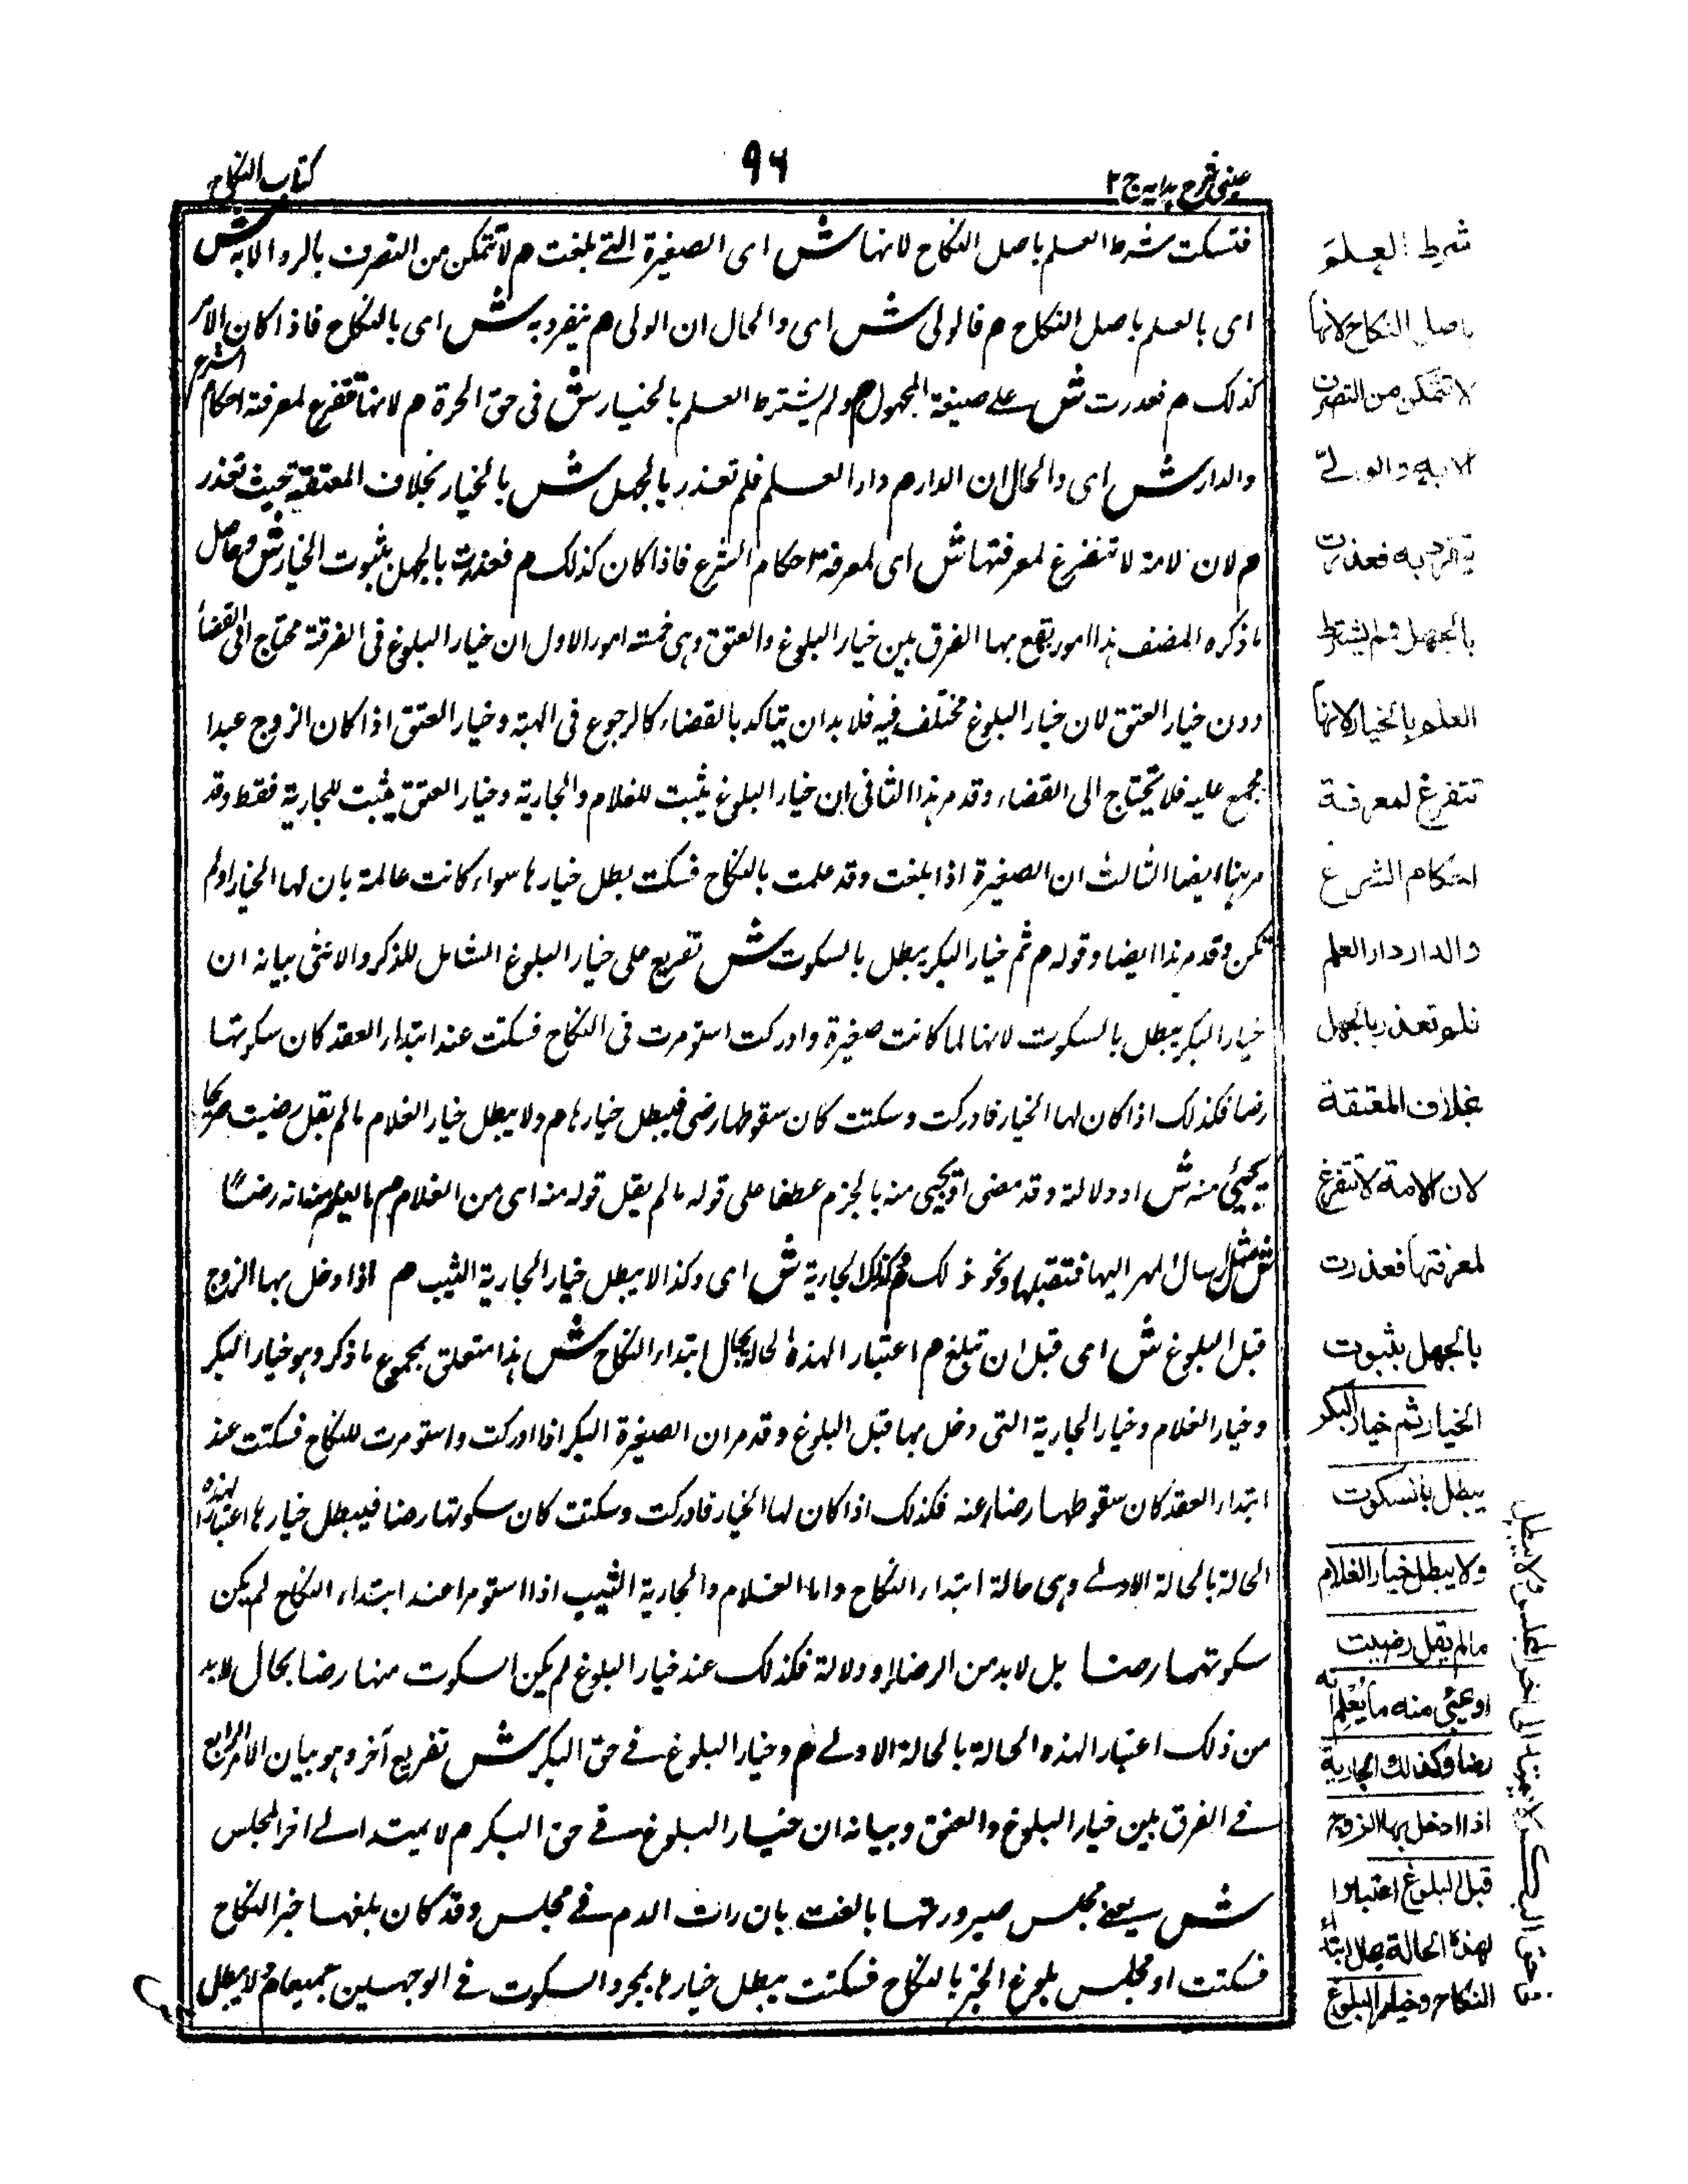 عینی شرح ہدایہ ج ۲
۹۶
کتاب النکاح
فتسکت شرط العلم باصل النکاح لانها ش ای الصغیرة التے بلغت م لا تتمکن من التصرف بالرد الا به ش
ای بالعلم باصل النکاح م فالولی ش ای والحال ان الولی م ینفرد به ش ای بالنکاح فاذا کان الامر
کذلک م فعذرت ش علے صیغة المجهول م ولم یشترط العلم بالخیار ش فی حق الحرة م لانها تتفرغ لمعرفة احکام الشرع
والدار ش ای والحال ان الدار م دار العلم فلم تعذر بالجهل ش بالخیار بخلاف المعتقة حیث تعذر
م لان الامة لا تتفرغ لمعرفتها ش ای لمعرفة احکام الشرع فاذا کان کذلک م فعذرت بالجهل بثبوت الخیار ش وحاصل
ما ذکره المصنف هذا امور یقع بها الفرق بین خیار البلوغ والعتق وهی خمسة امور الاول ان خیار البلوغ فی الفرقة محتاج الی القضاء
دون خیار العتق لان خیار البلوغ مختلف فیه فلا بد ان یتاکد بالقضاء کالرجوع فی الهبة وخیار العتق اذا کان الزوج عبدا
مجمع علیه فلا یحتاج الی القضاء وقد مر هذا الثانی ان خیار البلوغ یثبت للغلام والجاریة وخیار العتق یثبت للجاریة فقط وقد
مر هنا ایضا الثالث ان الصغیرة اذا بلغت وقد علمت بالنکاح فسکت بطل خیارها سواء کانت عالمة بان لها الخیار او لم
تکن وقد مر هذا ایضا وقوله م ثم خیار البکر یبطل بالسکوت ش تفریع علی خیار البلوغ الشامل للذکر والانثی بیانه ان
خیار البکر یبطل بالسکوت لانها لما کانت صغیرة وادرکت استومرت فی النکاح فسکتت عند ابتداء العقد کان سکوتها
رضا فکذلک اذا کان لها الخیار فادرکت وسکتت کان سقوطها رضی فیبطل خیارها م ولا یبطل خیار الغلام ما لم یقل رضیت صریحا
یجیئی منه ش او دلالة وقد مضی او یجیی منه بالجزم عطفا علی قوله ما لم یقل قوله منه ای من الغلام م ما یعلم منه انه رضا
ش مثل ارسال المهر الیها فتقبلها ونحو ذلک م وکذلک الجاریة ش ای وکذا لا یبطل خیار الجاریة الثیب م اذا دخل بها الزوج
قبل البلوغ ش ای قبل ان تبلغ م اعتبارا لهذه الحالة بحال ابتداء النکاح ش هذا متعلق بمجموع ما ذکر وهو خیار البکر
وخیار الغلام وخیار الجاریة التی دخل بها قبل البلوغ وقد مر ان الصغیرة البکر اذا ادرکت واستومرت للنکاح فسکتت عند
ابتداء العقد کان سقوطها رضاء عنه فکذلک اذا کان لها الخیار فادرکت وسکتت کان سکوتها رضا فیبطل خیارها اعتبارا لهذه
الحالة بالحالة الاولے وهی حالة ابتداء النکاح واما الغلام والجاریة الثیب اذا استومرا عند ابتداء النکاح لم یکن
سکوتهما رضا بل لا بد من الرضا او دلالة فکذلک عند خیار البلوغ لم یکن السکوت منها رضا بحال لا بد
من ذلک اعتبارا لهذه الحالة بالحالة الاولے م وخیار البلوغ فے حق البکر ش تفریع آخر وهو بیان الامر الرابع
فے الفرق بین خیار البلوغ والعتق وبیانه ان خیار البلوغ فے حق البکر م لا یمتد الے اخر المجلس
ش یعنے مجلس صیرورتها بالغة بان رات الدم فے مجلس وقد کان بلغها خبر النکاح
فسکتت او مجلس بلوغ الخبر بالنکاح فسکتت یبطل خیارها بمجرد السکوت فے الوجهین جمیعا م ولا یبطل
شرط العلم
باصل النکاح لانها
لا تتمکن من التصرف
الا به والولے
ینفرد به فعذرت
بالجهل ولم یشترط
العلم بالخیار لانها
تتفرغ لمعرفة
احکام الشرع
والدار دار العلم
فلم تعذر بالجهل
بخلاف المعتقة
لان الامة لا تتفرغ
لمعرفتها فعذرت
بالجهل بثبوت
الخیار ثم خیار البکر
یبطل بالسکوت
ولا یبطل خیار الغلام
ما لم یقل رضیت
او یجئی منه ما یعلم انه
رضا وکذلک الجاریة
اذا دخل بها الزوج
قبل البلوغ اعتبارا
لهذه الحالة بحال ابتداء
النکاح وخیار البلوغ
فی حق البکر لا یمتد الی اخر المجلس ولا یبطل